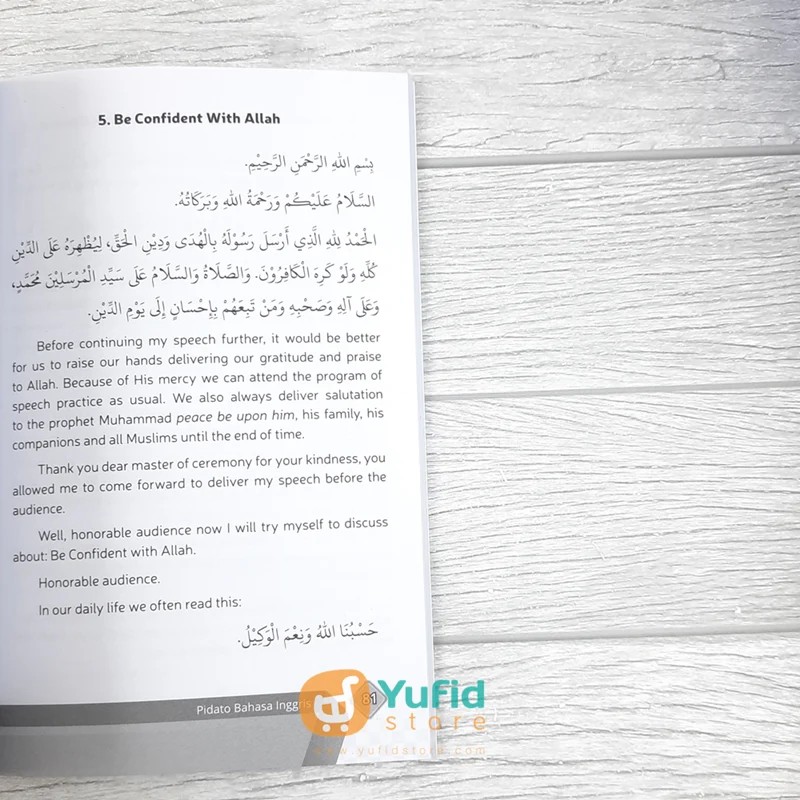 5. Be Confident With Allah
بِسْمِ اللهِ الرَّحْمَنِ الرَّحِيْمِ.
السَّلَامُ عَلَيْكُمْ وَرَحْمَةُ اللهِ وَبَرَكَاتُهُ.
الْحَمْدُ لِلهِ الَّذِي أَرْسَلَ رَسُوْلَهُ بِالْهُدَى وَدِيْنِ الْحَقِّ، لِيُظْهِرَهُ عَلَى الدِّيْنِ
كُلِّهِ وَلَوْ كَرِهَ الْكَافِرُوْنَ. وَالصَّلَاةُ وَالسَّلَامُ عَلَى سَيِّدِ الْمُرْسَلِيْنَ مُحَمَّدٍ،
وَعَلَى آلِهِ وَصَحْبِهِ وَمَنْ تَبِعَهُمْ بِإِحْسَانٍ إِلَى يَوْمِ الدِّيْنِ.
Before continuing my speech further, it would be better
for us to raise our hands delivering our gratitude and praise
to Allah. Because of His mercy we can attend the program of
speech practice as usual. We also always deliver salutation
to the prophet Muhammad peace be upon him, his family, his
companions and all Muslims until the end of time.
Thank you dear master of ceremony for your kindness, you
allowed me to come forward to deliver my speech before the
audience.
Well, honorable audience now I will try myself to discuss
about: Be Confident with Allah.
Honorable audience.
In our daily life we often read this:
حَسْبُنَا اللهُ وَنِعْمَ الْوَكِيْلُ.
Pidato Bahasa Inggris
81
Yufid
store
www.yufidstore.com